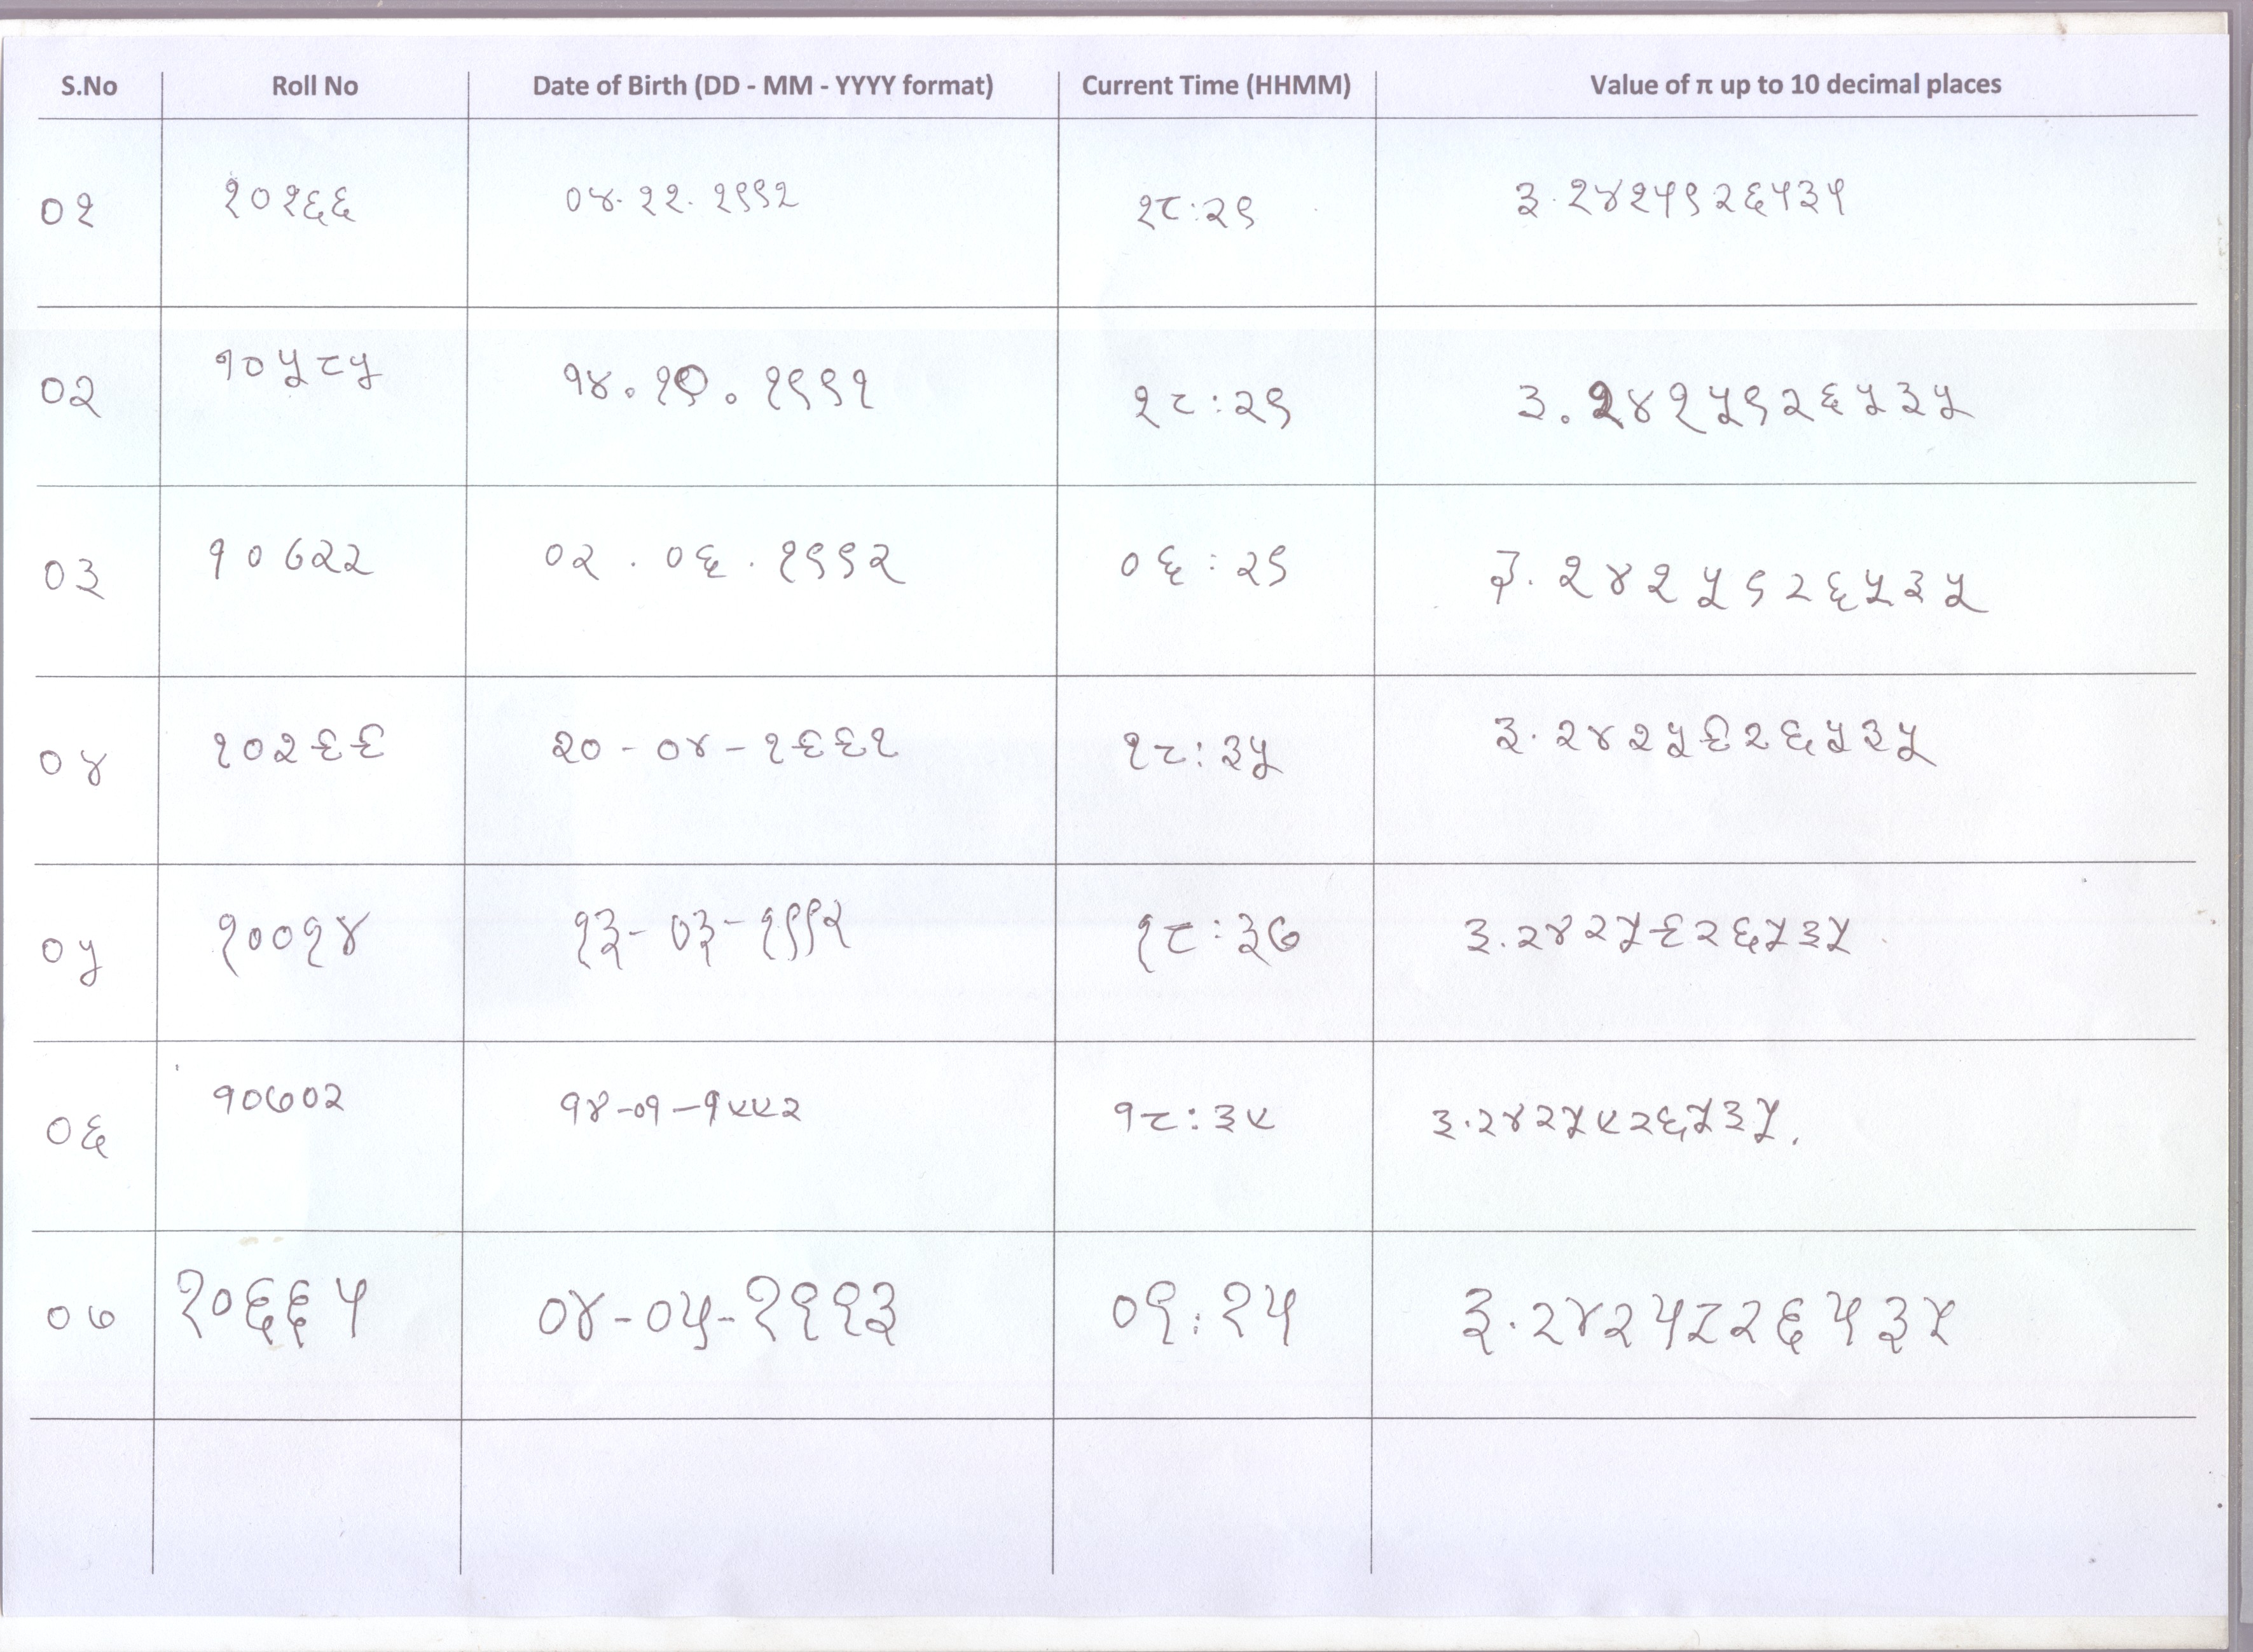 S.No Roll No Date of Birth (DD - MM - YYYY format) Current Time (HHMM) Value of π up to 10 decimal places
०१ १०१६६ ०४.११.१९९१ १८:२९ ३.१४१५९२६५३५
०२ १०५८५ १४.१०.१९९१ १८:२९ ३.१४१५९२६५३५
०३ १०७२२ ०२.०६.१९९२ ०६:२९ ३.१४१५९२६५३५
०४ १०२९९ २०-०४-१९९१ १८:३५ ३.१४१५९२६५३५
०५ १००१४ १३-०३-१९९२ १८:३७ ३.२४२५९२६५३५
०६ १०७०२ १४-०१-१९९२ १८:३९ ३.२४२५९२६५३५.
०७ १०६६५ ०४-०५-१९९३ ०९:१५ ३.२४२५८२६५३५